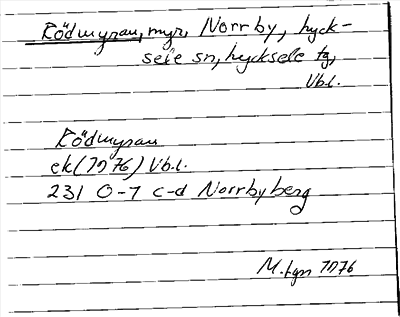 Rödmyran, myr, Norrby, Lyck-
sele sn, Lycksele tg,
Vb.l.
Rödmyran
ek (1976) Vb.l.
231 0-1 c-d Norrbyberg
M. 1976